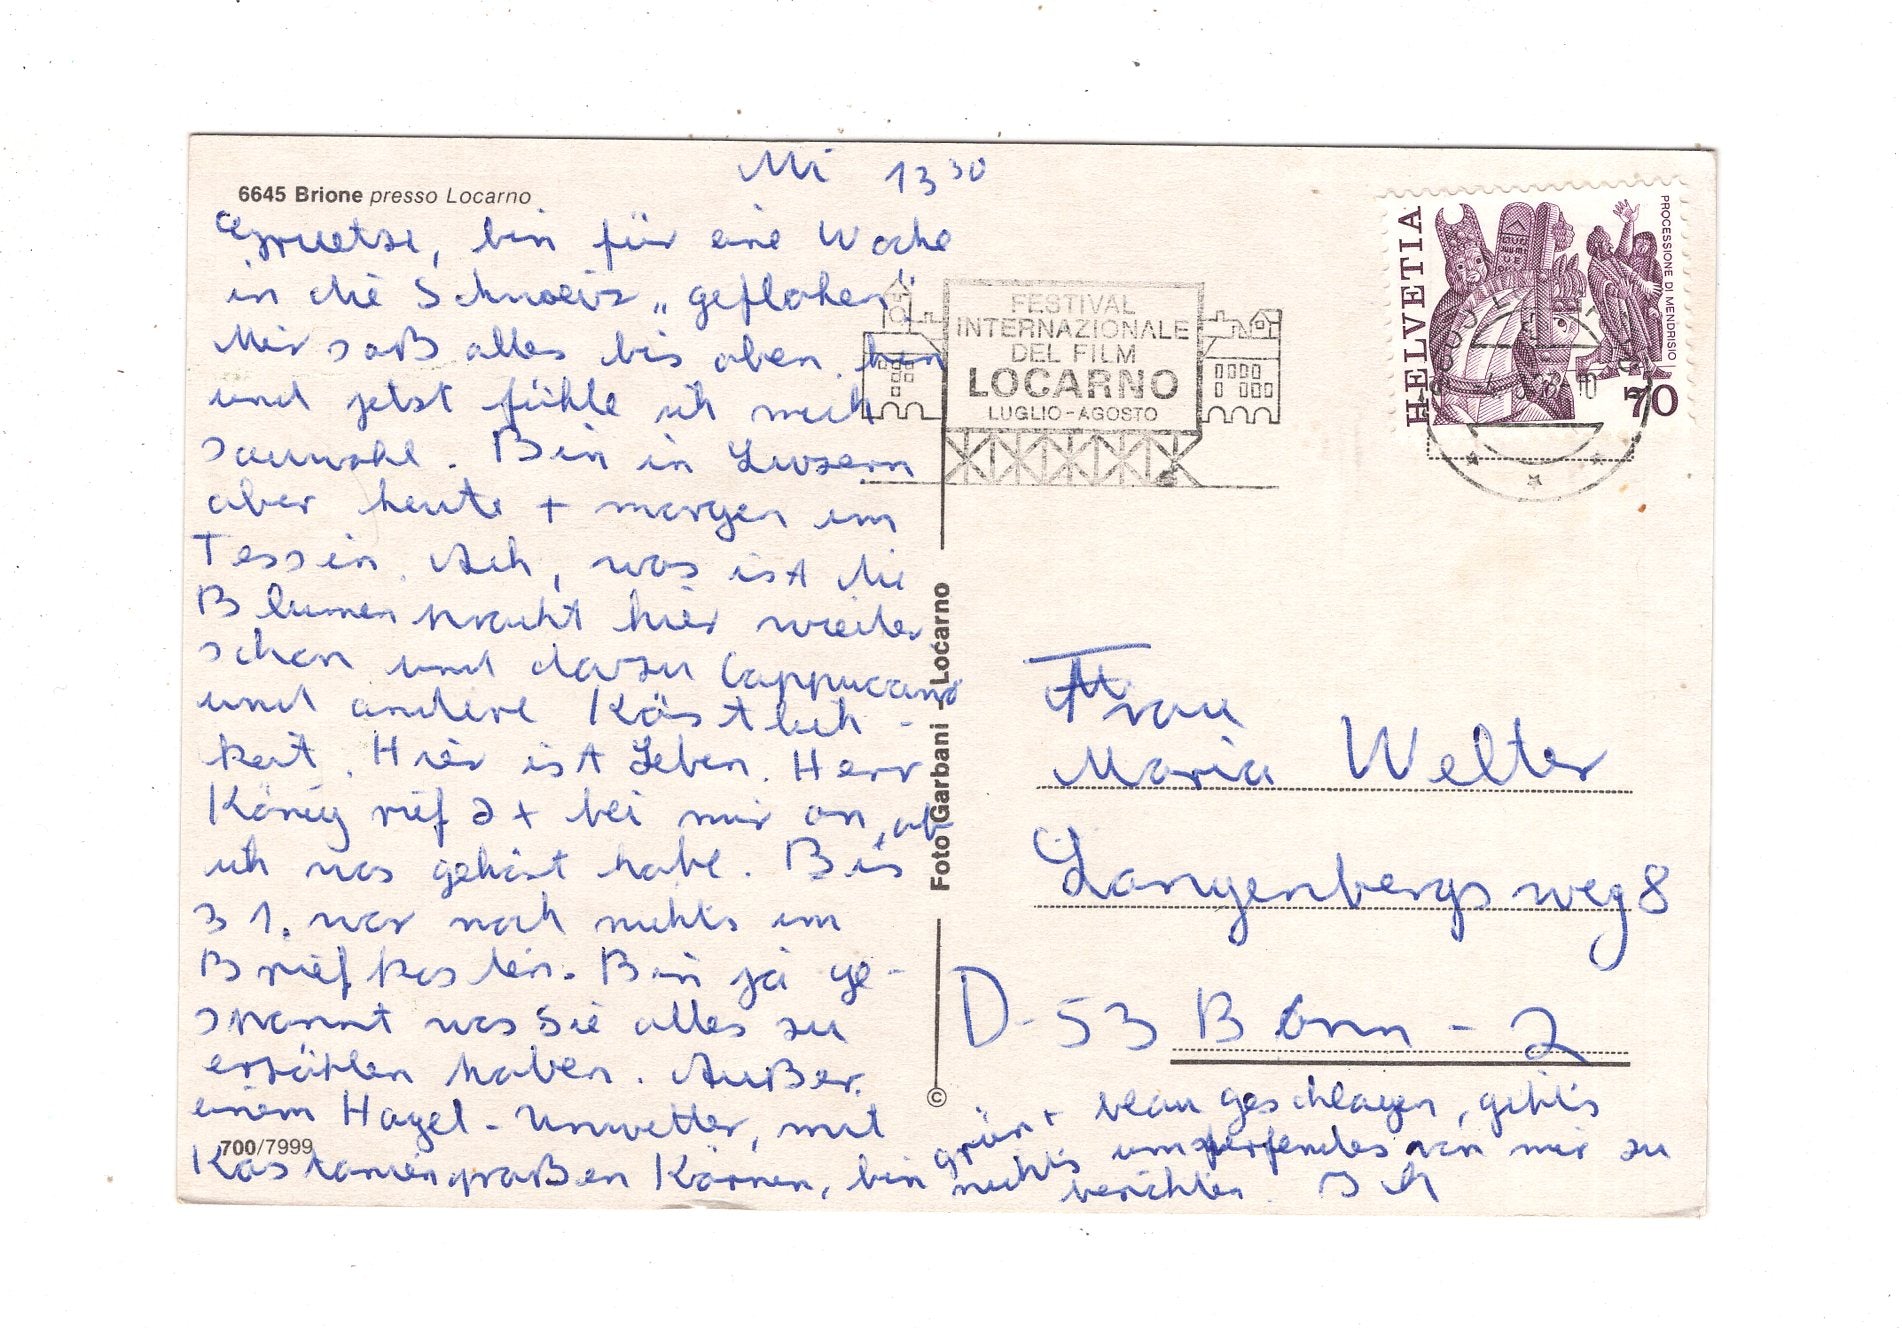 Mi 13 30
6645 Brione presso Locarno
Gruetze, bin für eine Woche
in die Schweiz „geflohen".
Mir saß alles bis oben hin
und jetzt fühle ich mich
sauwohl. Bin in Luzern
aber heute + morgen im
Tessin. Ach, was ist die
Blumenpracht hier wieder
schön und dazu Cappucino
und andere Köstlich-
keit. Hier ist Leben. Herr
König rief 2 x bei mir an, ob
ich was gehört habe. Bis
31. war noch nichts im
Briefkasten. Bin ja ge-
spannt was Sie alles zu
erzählen haben. Außer
einem Hagel-Unwetter, mit
Kastaniengroßen Körnern, bin
grün + blau geschlagen, gibt's
nichts umwerfendes von mir zu
berichten.
700/7999
Foto Garbani - Locarno
©
FESTIVAL
INTERNAZIONALE
DEL FILM
LOCARNO
LUGLIO-AGOSTO
HELVETIA
PROCESSIONE DI MENDRISIO
70
Frau
Maria Welter
Langenbergsweg 8
D-53 Bonn-2